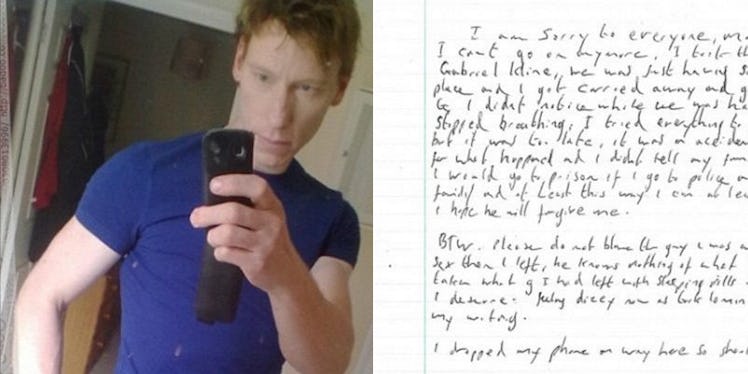 I am sorry to everyone,
I cant go on anymore, I took th
Gabriel Kline, we was just having s
place and I got carried away and g
G, I didnt notice while we was ha
Stopped breathing. I tried everything to
but it was to late, it was an acciden
for what happned and I didnt tell my fam
I would go to prison if I go to police an
family and at least this way I can at lea
I hope he will forgive me.
BTW. Please do not blame the guy I was w
sex then I left, he knows nothing of what
taken what g I had left with sleeping pills
I deserve. feeling dizzy now as took 10 min
my writing.
I dropped my phone on way here so shou